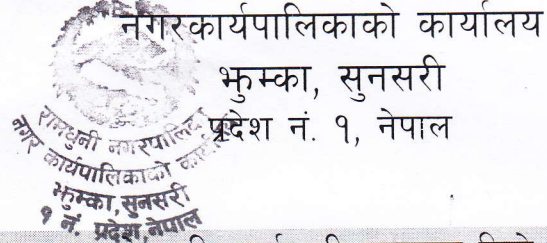 नगरकार्यपालिकाको कार्यालय
झुम्का, सुनसरी
प्रदेश नं. १, नेपाल
रामधुनी नगरपालिका
नगर कार्यपालिकाको
झुम्का, सुनसरी
१ नं. प्रदेश, नेपाल